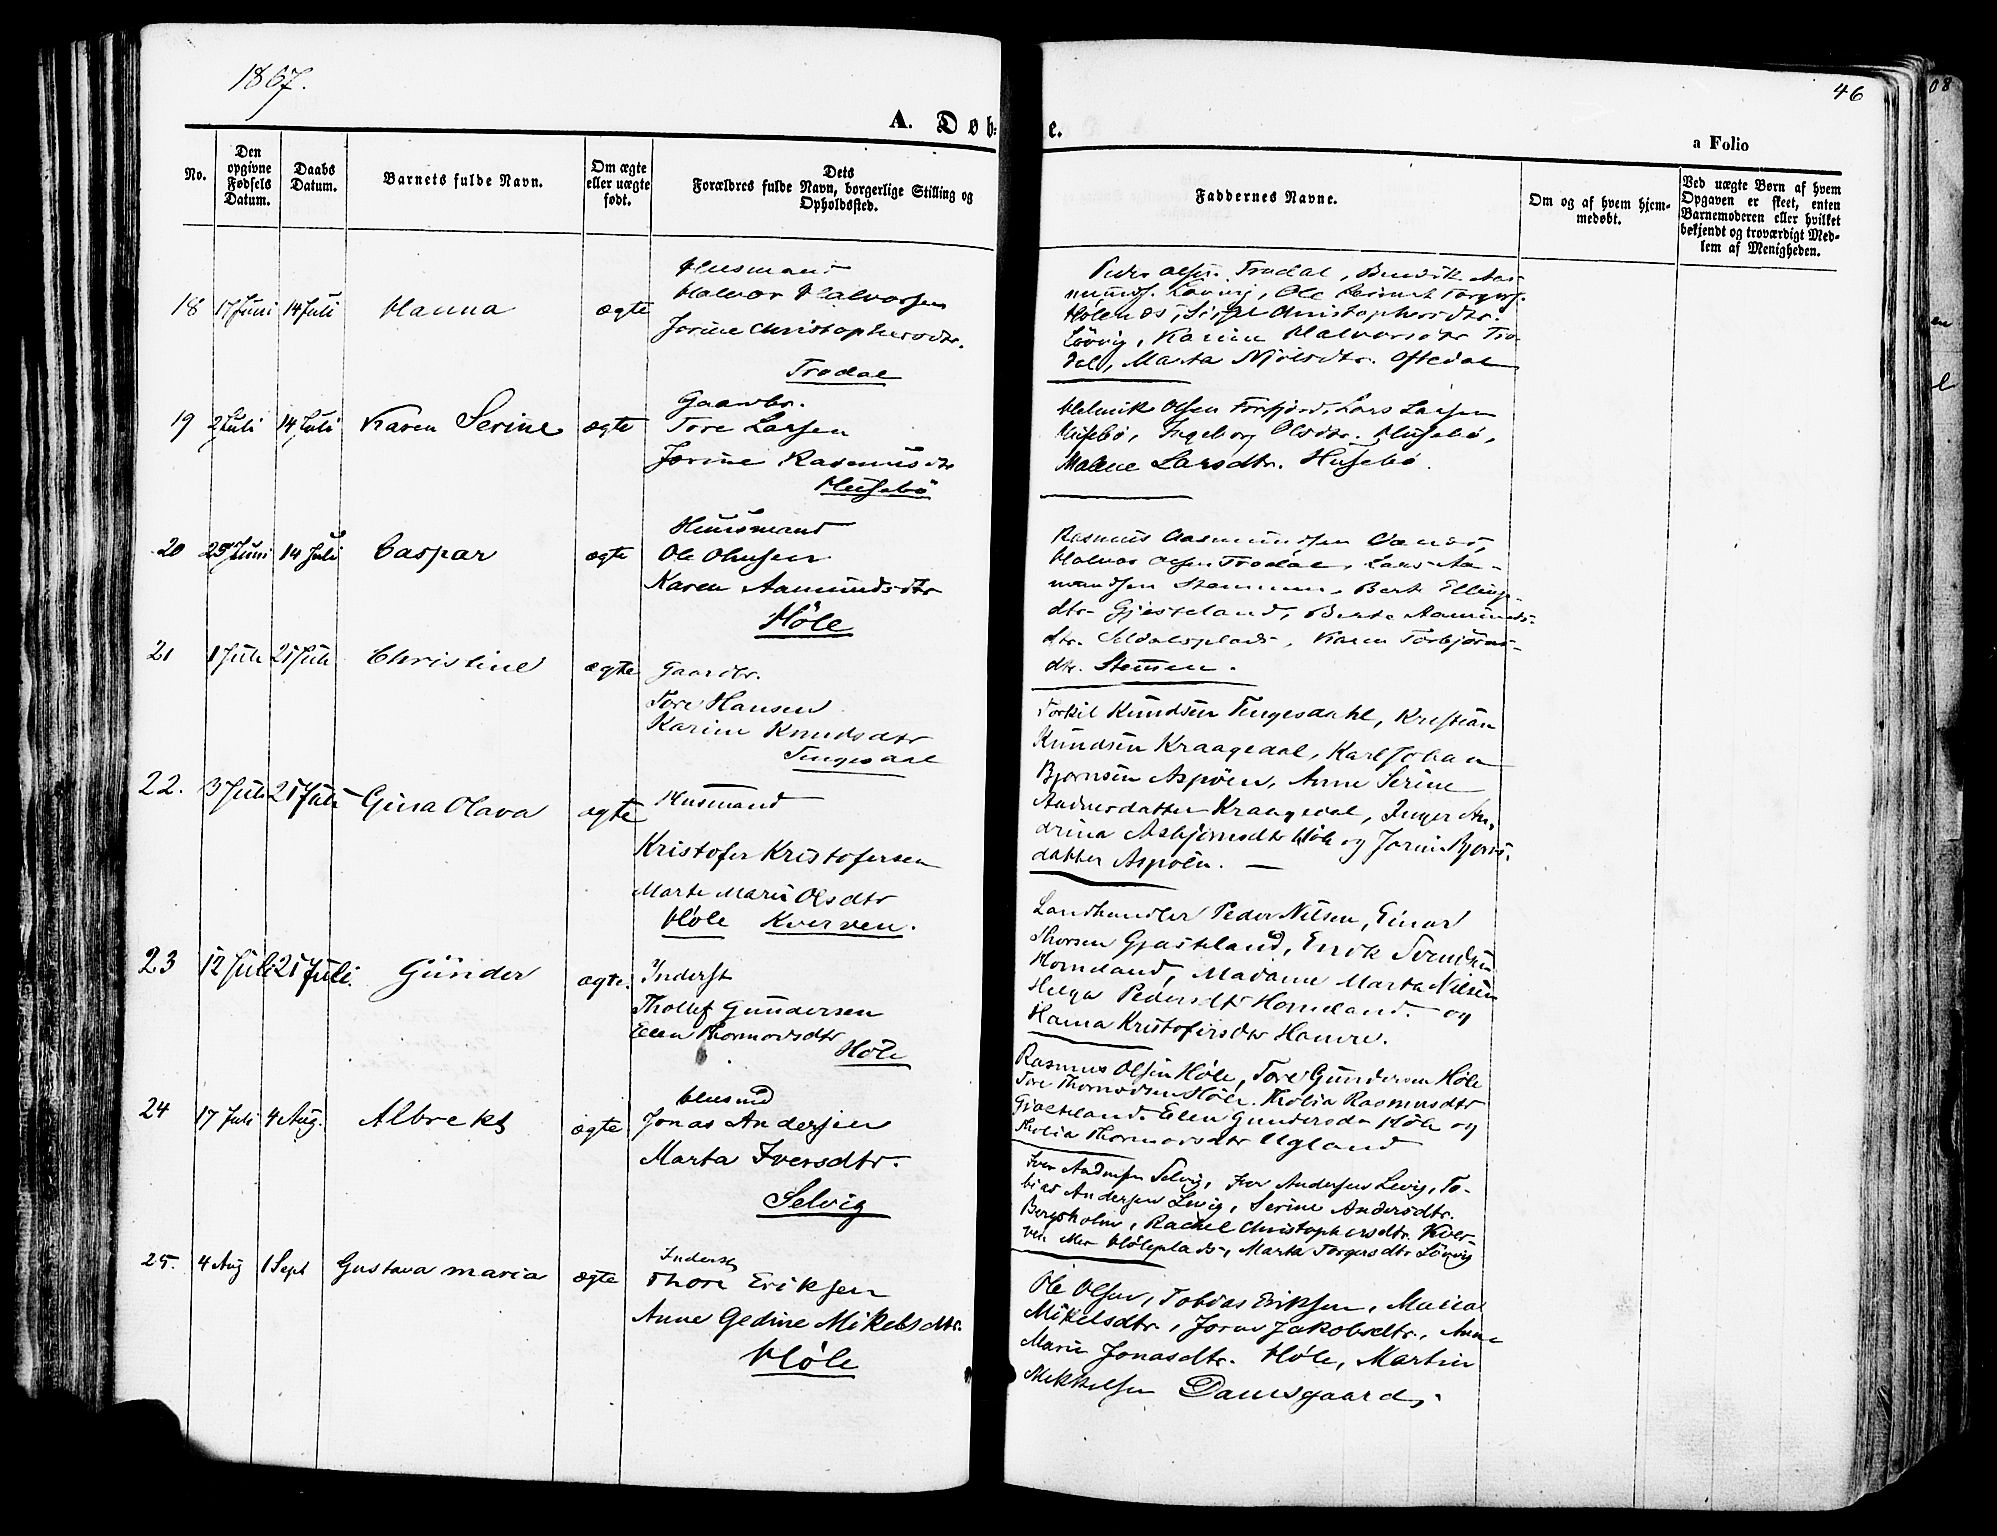 1867.
46
08
A. Døb-
e.
a Folio
No.
Den opgivne Fødsels Datum.
Daabs Datum.
Barnets fulde Navn.
Om ægte eller uægte født.
Dets Forældres fulde Navn, borgerlige Stilling og Opholdssted.
Faddernes Navne.
Om og af hvem hjemmedøbt.
Ved uægte Børn af hvem Opgaven er skeet, enten Barnemoderen eller hvilket bekjendt og troværdigt Medlem af Menigheden.
18 17 Juni 14 Juli Hanna ægte
Husmand
Halvor Halvorsen
Jorine Christophersdtr.
Trodal
Peder Olsen Trodal, Bendik Aa-
munds. Lövvig, Ole Torgers.
Holenæs, Sissel Christophersdtr.
Lövvig, Karine Halvorsdtr Tro-
dal, Marta Njelsdtr. Oftedal
19 2 Juli 14 Juli Karen Serine ægte
Gaardbr.
Tore Larsen
Jorine Rasmusdtr
Husebö
Helmik Olsen Forfjord, Lars Larsen
Husebö, Ingeborg Olsdtr. Husebö,
Malene Larsdtr. Husebö.
20 25 Juni 14 Juli Caspar ægte
Huusmand
Ole Olausen
Karen Aamundsdtr
Höle
Rasmus Aasmundsen
Halvor Olsen Trodal, Lars Aa-
mundsen Stemmen, Bert Elling-
dtr. Gjesteland, Berte Aamunds-
dtr. Seldalsplads, Karen Torbjörns-
dtr. Stemmen.
21 1 Juli 21 Juli Christine ægte
Gaardbr.
Tore Hansen
Karine Knudsdtr
Tengesdal
Torkil Knudsen Tengesdahl, Kristian
Knudsen Kraagedal, Karl Johan
Bjørnsen Aspöen, Anne Serine
Andersdatter Kraagedal, Inger An-
drina Asbjørnsdtr Höle og Jorine Bjørns-
datter Aspöen.
22. 3 Juli 21 Juli Gina Olava ægte
Husmand
Kristofer Kristofersen
Marte Marie Olsdtr
Höle Kverven.
Landhandler Peder Nilsen, Einar
Thorsen Gjasteland, Erik Svendsen
Homeland, Madame Marta Nilsen
Helga Pedersdtr Homeland. og
Hanna Kristofersdtr Hamre.
23 12 Juli 21 Juli. Günder ægte.
Inderst
Thollef Gundersen
Elen Thormodsdtr
Höle
Rasmus Olsen Höle, Tore Gundersen Höle
Tore Thormodsen Höle. Tholia Rasmusdtr
Gjasteland. Elen Gundersdr Höle og
Tholia Thormodsdtr Ugland
24 17 Juli 4 Aug. Albrekt ægte
Husmd
Jonas Andersen
Marta Iversdtr.
Selvig
Iver Andersen Selvig, Iver Andersen Levig, To-
bias Andersen Levig, Serine Andersdtr.
Bergsholm, Rachel Christophersdtr. Kver-
ven Höleplads, Marta Torgersdtr Lövvig
25. 4 Aug 1 Sept Gustava Maria ægte
Inderst
Thore Eriksen
Anne Gedine Mikelsdtr.
Höle
Ole Olsen, Tobias Eriksen, Maria
Mikelsdtr., Jorine Jakobsdtr., Anne
Marie Jonasdtr. Höle, Martin
Mikkelsen Damsgaard.